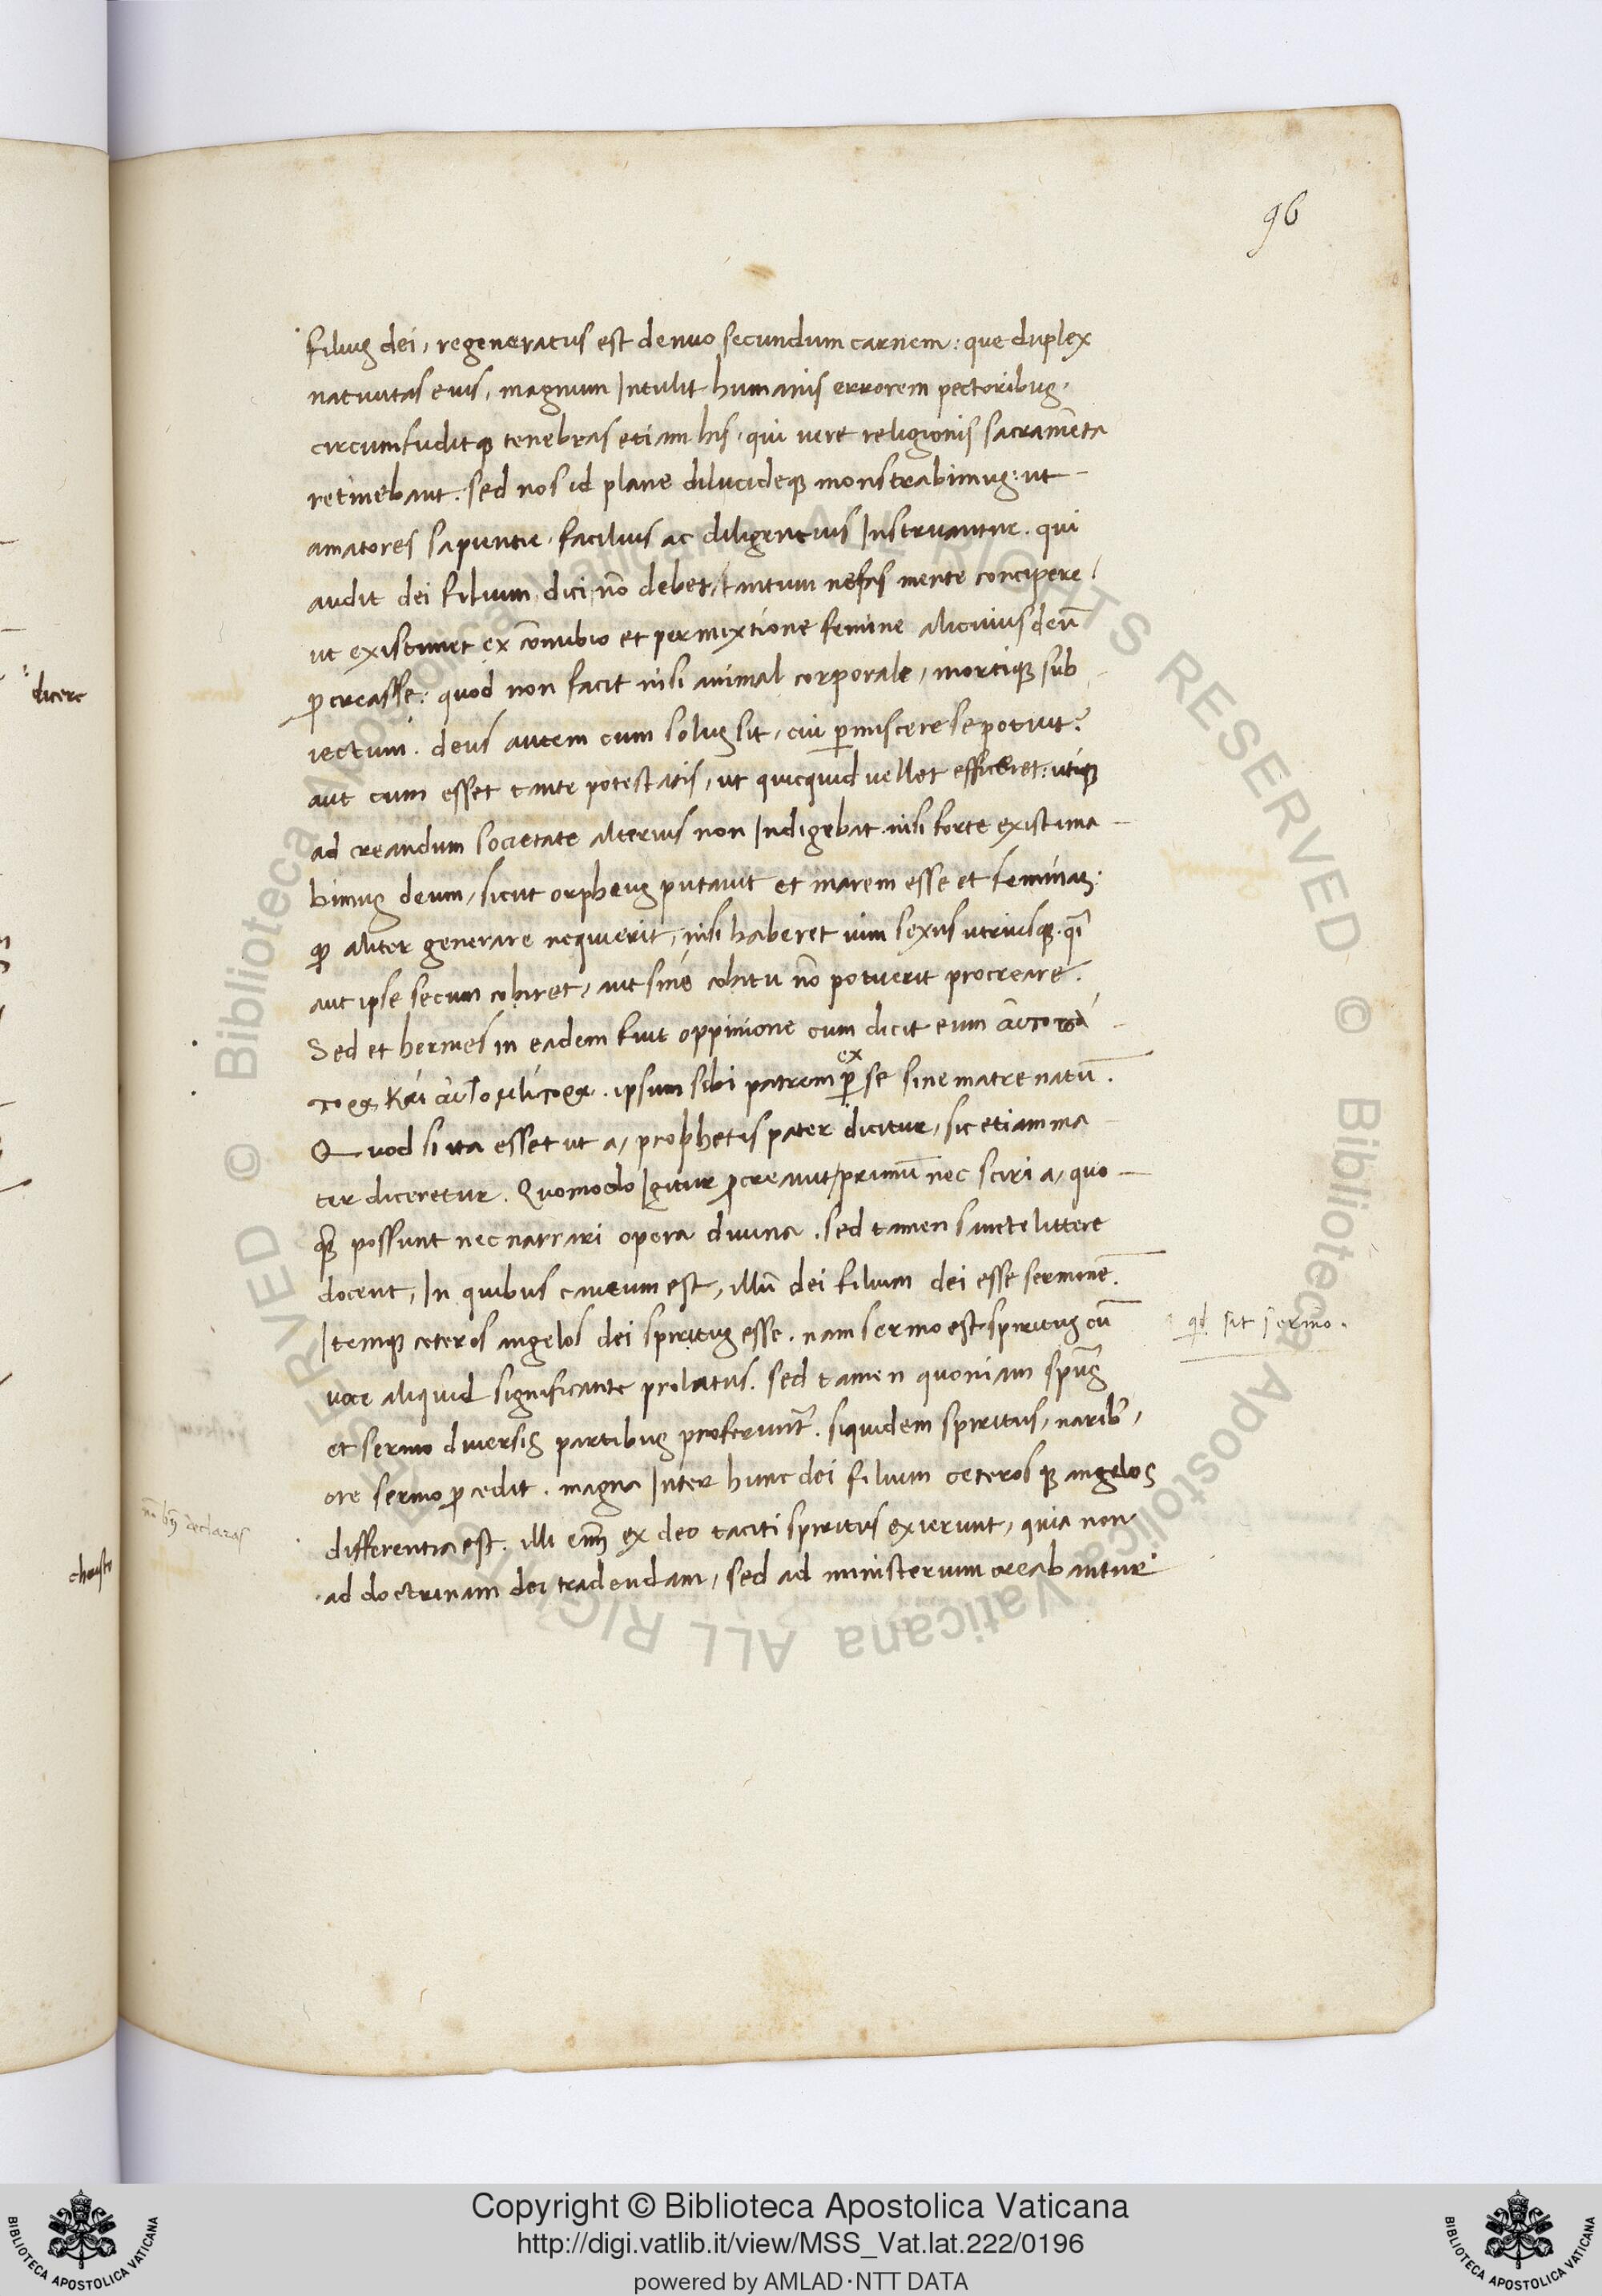 96
filius dei, regeneratus est denuo secundum carnem: que duplex
natiuitas eius, magnum Intulit humanis errorem pectoribus.
circumfuditq; tenebras etiam his, qui uere religionis sacramēta
retinebant. sed nos id plane dilucideq; monstrabimus: ut
amatores sapientie, facilius ac diligentius Instruantur. qui
audit dei filium dici, nō debet, tantum nefas mente concipere,
ut existimet ex cōnubio et permixtione femine alicuius deū
ꝓcreasse: quod non facit nisi animal corporale, mortiq; sub
iectum. deus autem cum solus sit, cui ꝑmiscere se potuit?
aut cum esset tante potestatis, ut quicquid uellet efficeret: utiq;
ad creandum societate alterius non Indigebat. nisi forte existima
bimus deum, sicut orpheus putauit et marem esse et feminam:
ꝙ aliter generare nequierit, nisi haberet uim sexus utriusq;. qͣi
aut ipse secum cohiret, aut sine cohitu nō potuerit procreare.
Sed et hermes in eadem fuit oppinione cum dicit eum ἀυτοπά
τορα καὶ ἀυτομήτορα. ipsum sibi patrem ex ꝑ se sine matre natū.
Quod si ita esset ut a, prophetis pater dicitur, sic etiam ma
ter diceretur. Quomodo Igitur ꝓcreauit, primū nec sciri a, quo
qȝ possunt nec narrari opera diuina. sed tamen sancte littere
docent, In quibus cautum est, illū dei filium dei esse sermonē.
Itemq; ceteros angelos dei spiritus esse. nam sermo est spiritus cū
uoce aliquid significante prolatus. sed tamen quoniam spūs
et sermo diuersis partibus proferunt᷑. siquidem spiritus, narib᷒,
ore sermo ꝓcedit. magna Inter hunc dei filium ceterosq; angelos
differentia est. illi enī ex deo taciti spiritus exierunt, quia non
ad doctrinam dei tradendam, sed ad ministerium creabantur
qd sit sermo.
dicere
Copyright © Biblioteca Apostolica Vaticana
http://digi.vatlib.it/view/MSS_Vat.lat.222/0196
powered by AMLAD·NTT DATA
BIBLIOTECA APOSTOLICA VATICANA
BIBLIOTECA APOSTOLICA VATICANA
© Biblioteca Apostolica Vaticana ALL RIGHTS RESERVED © Biblioteca Apostolica Vaticana ALL RIGHTS RESERVED